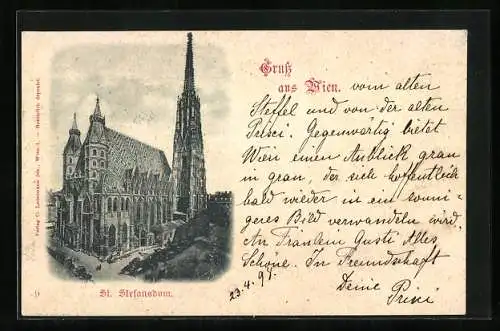 Gruß
aus Wien. vom alten
Steffel und von der alten
Prisci. Gegenwärtig bietet
Wien einen Anblick grau
in grau, der sich hoffentlich
bald wieder in ein sonni-
geres Bild verwandeln wird.
An Fräulein Gusti Alles
Schöne. In Freundschaft
23.4.97. Deine
St. Stefansdom.